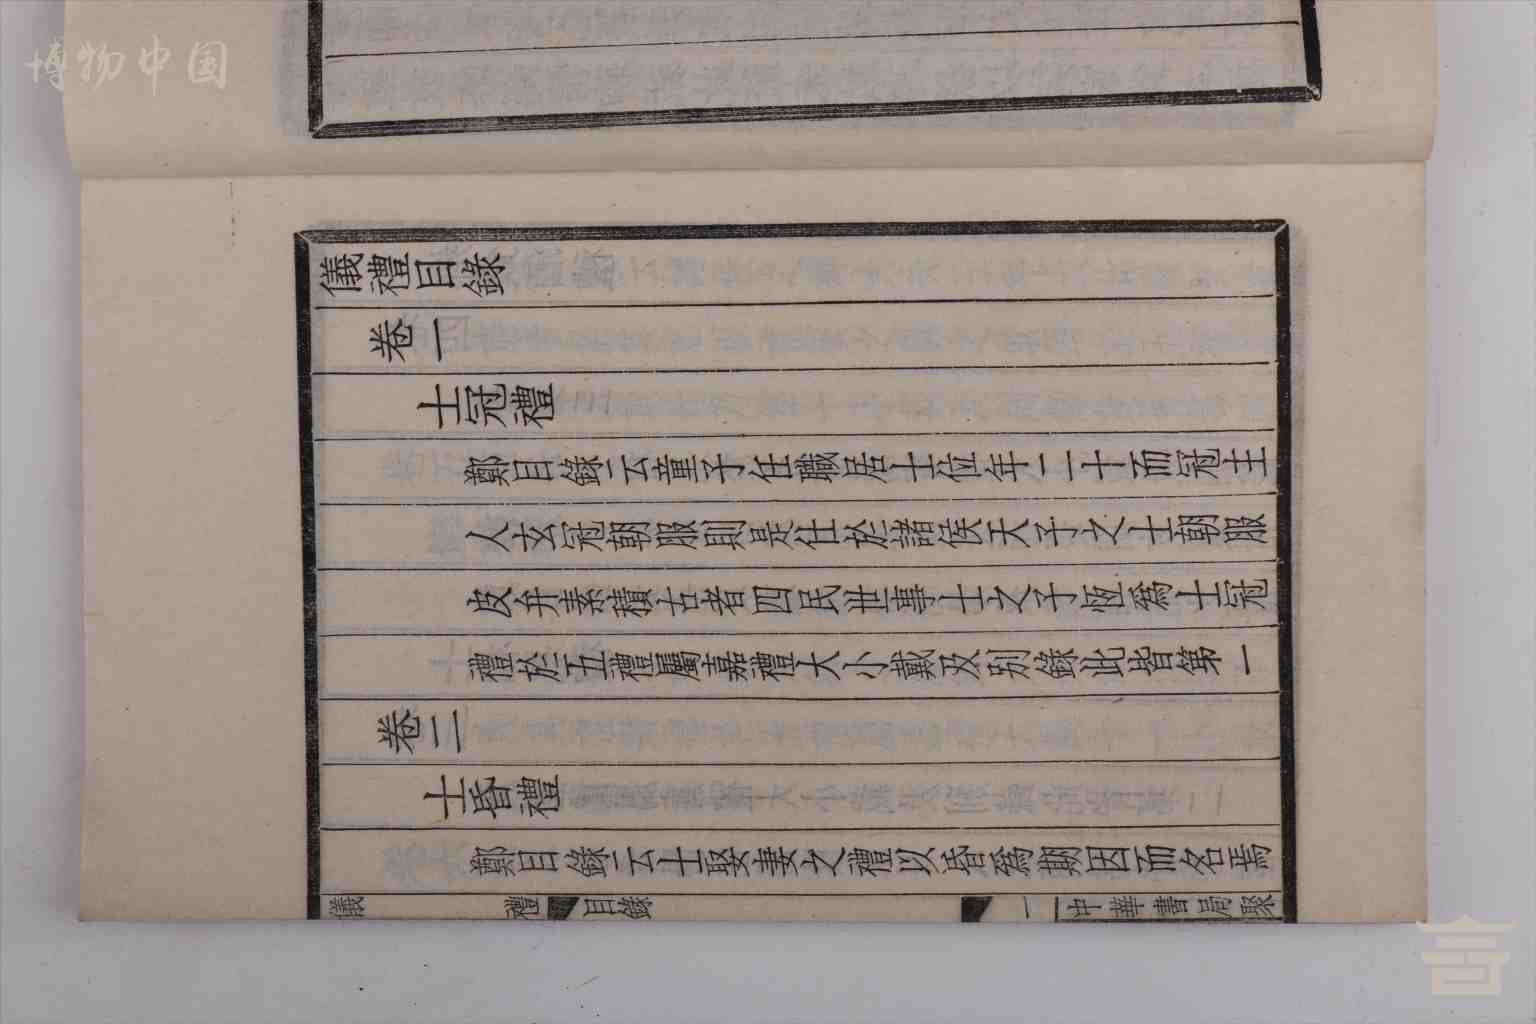 博物中国
儀禮目錄
卷一
士冠禮
鄭目錄云童子任職居士位年二十而冠主
人玄冠朝服則是仕於諸侯天子之士朝服
皮弁素積古者四民世事士之子恆爲士冠
禮於五禮屬嘉禮大小戴及別錄此皆第一
卷二
士昏禮
鄭目錄云士娶妻之禮以昏爲期因而名焉
儀禮 目錄 一 中華書局聚